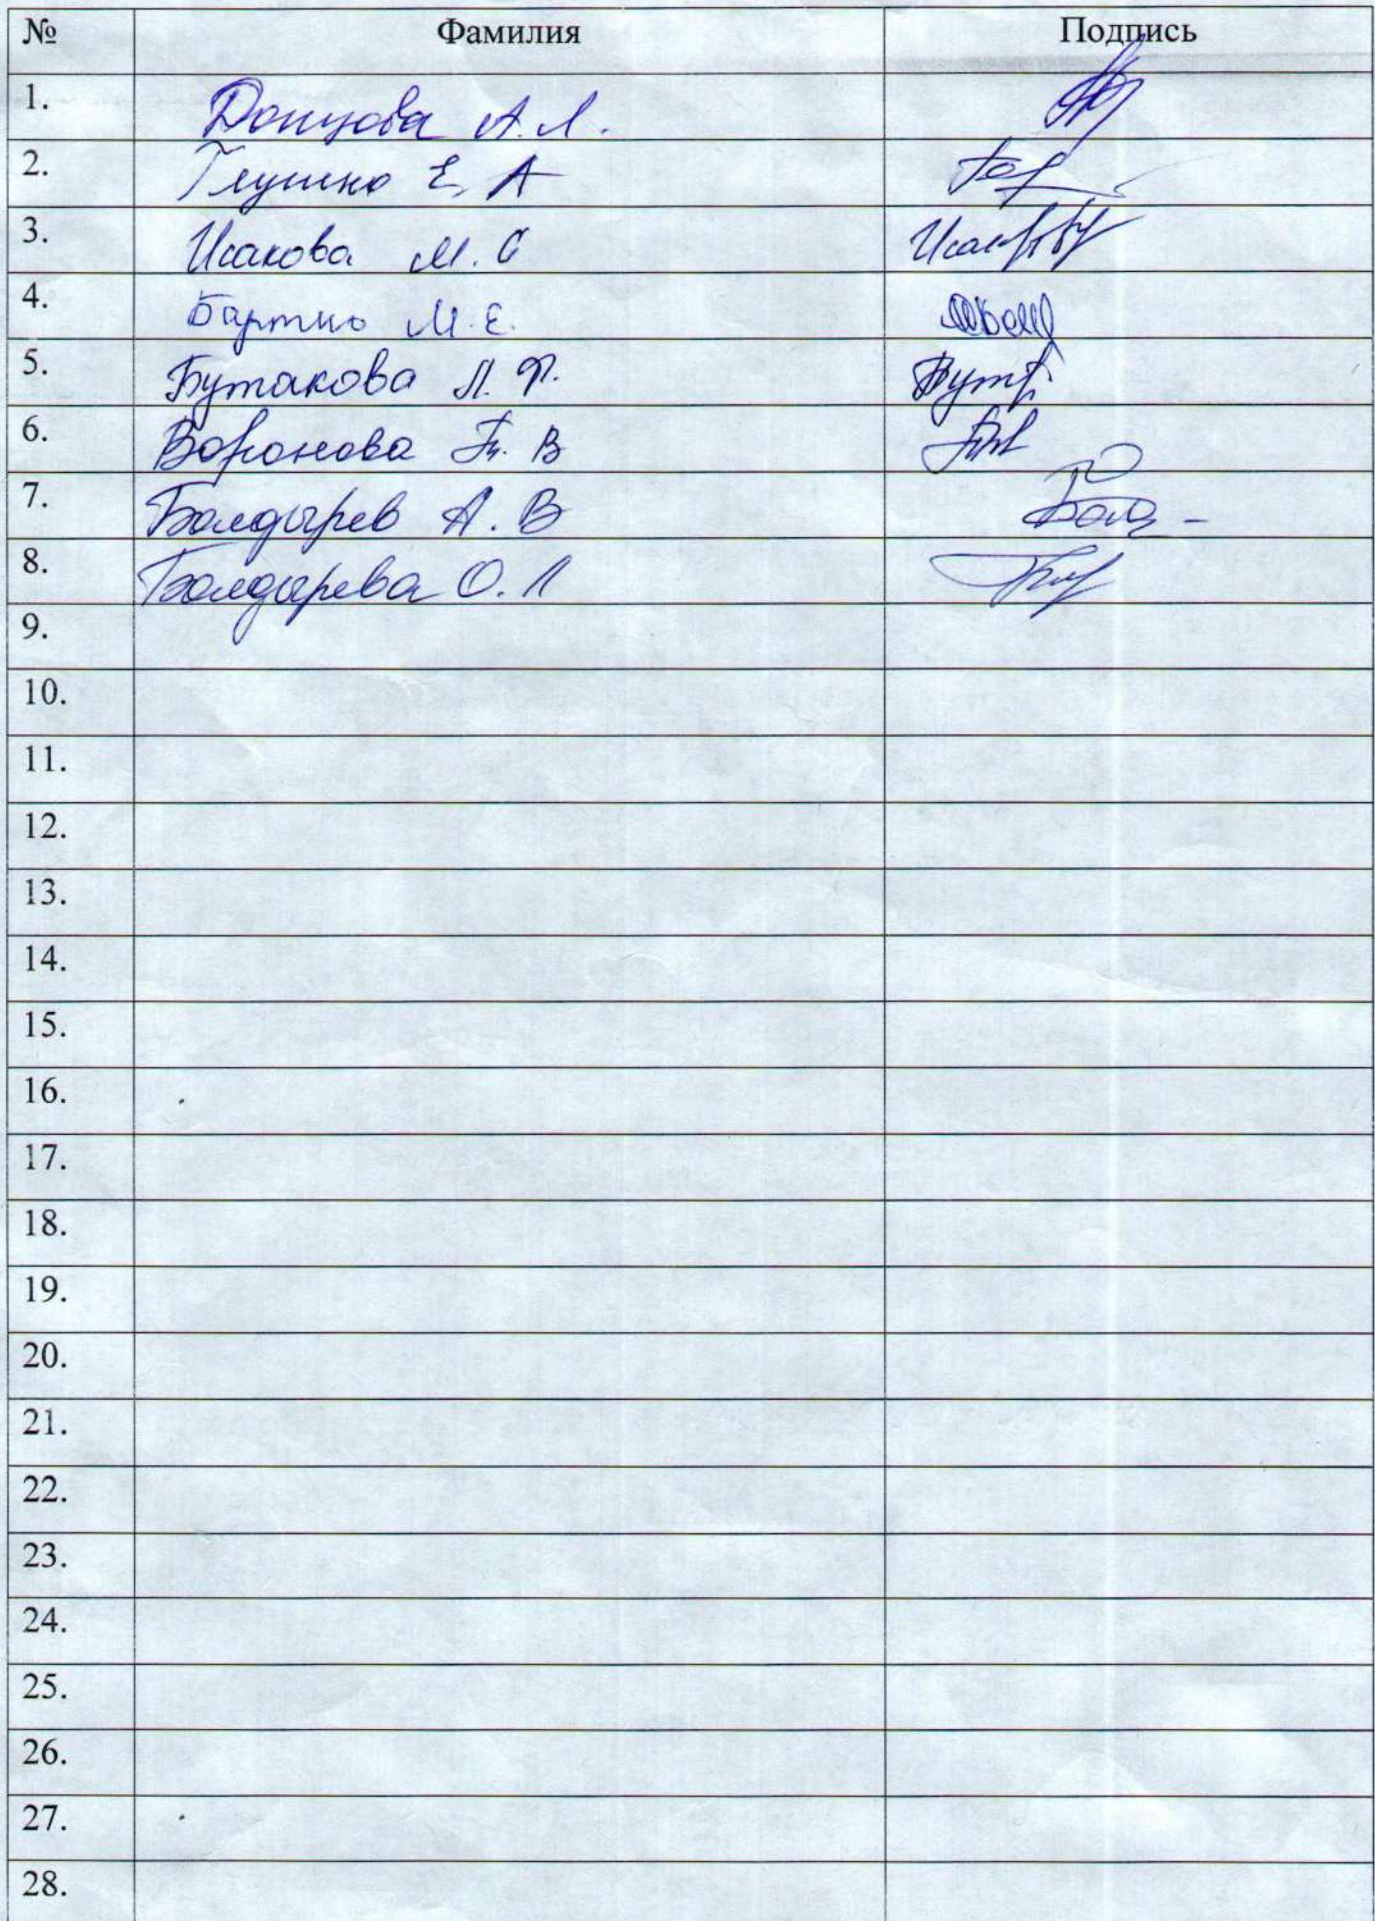 № Фамилия Подпись
1. Донцова А. Л.
2. Глушко Е. А
3. Исакова М. С
4. М. Е.
5. Бутакова Л. Ф.
6. Воронова В
7. Болдырев А. В
8. Болдырева О. Л
9.
10.
11.
12.
13.
14.
15.
16.
17.
18.
19.
20.
21.
22.
23.
24.
25.
26.
27.
28.